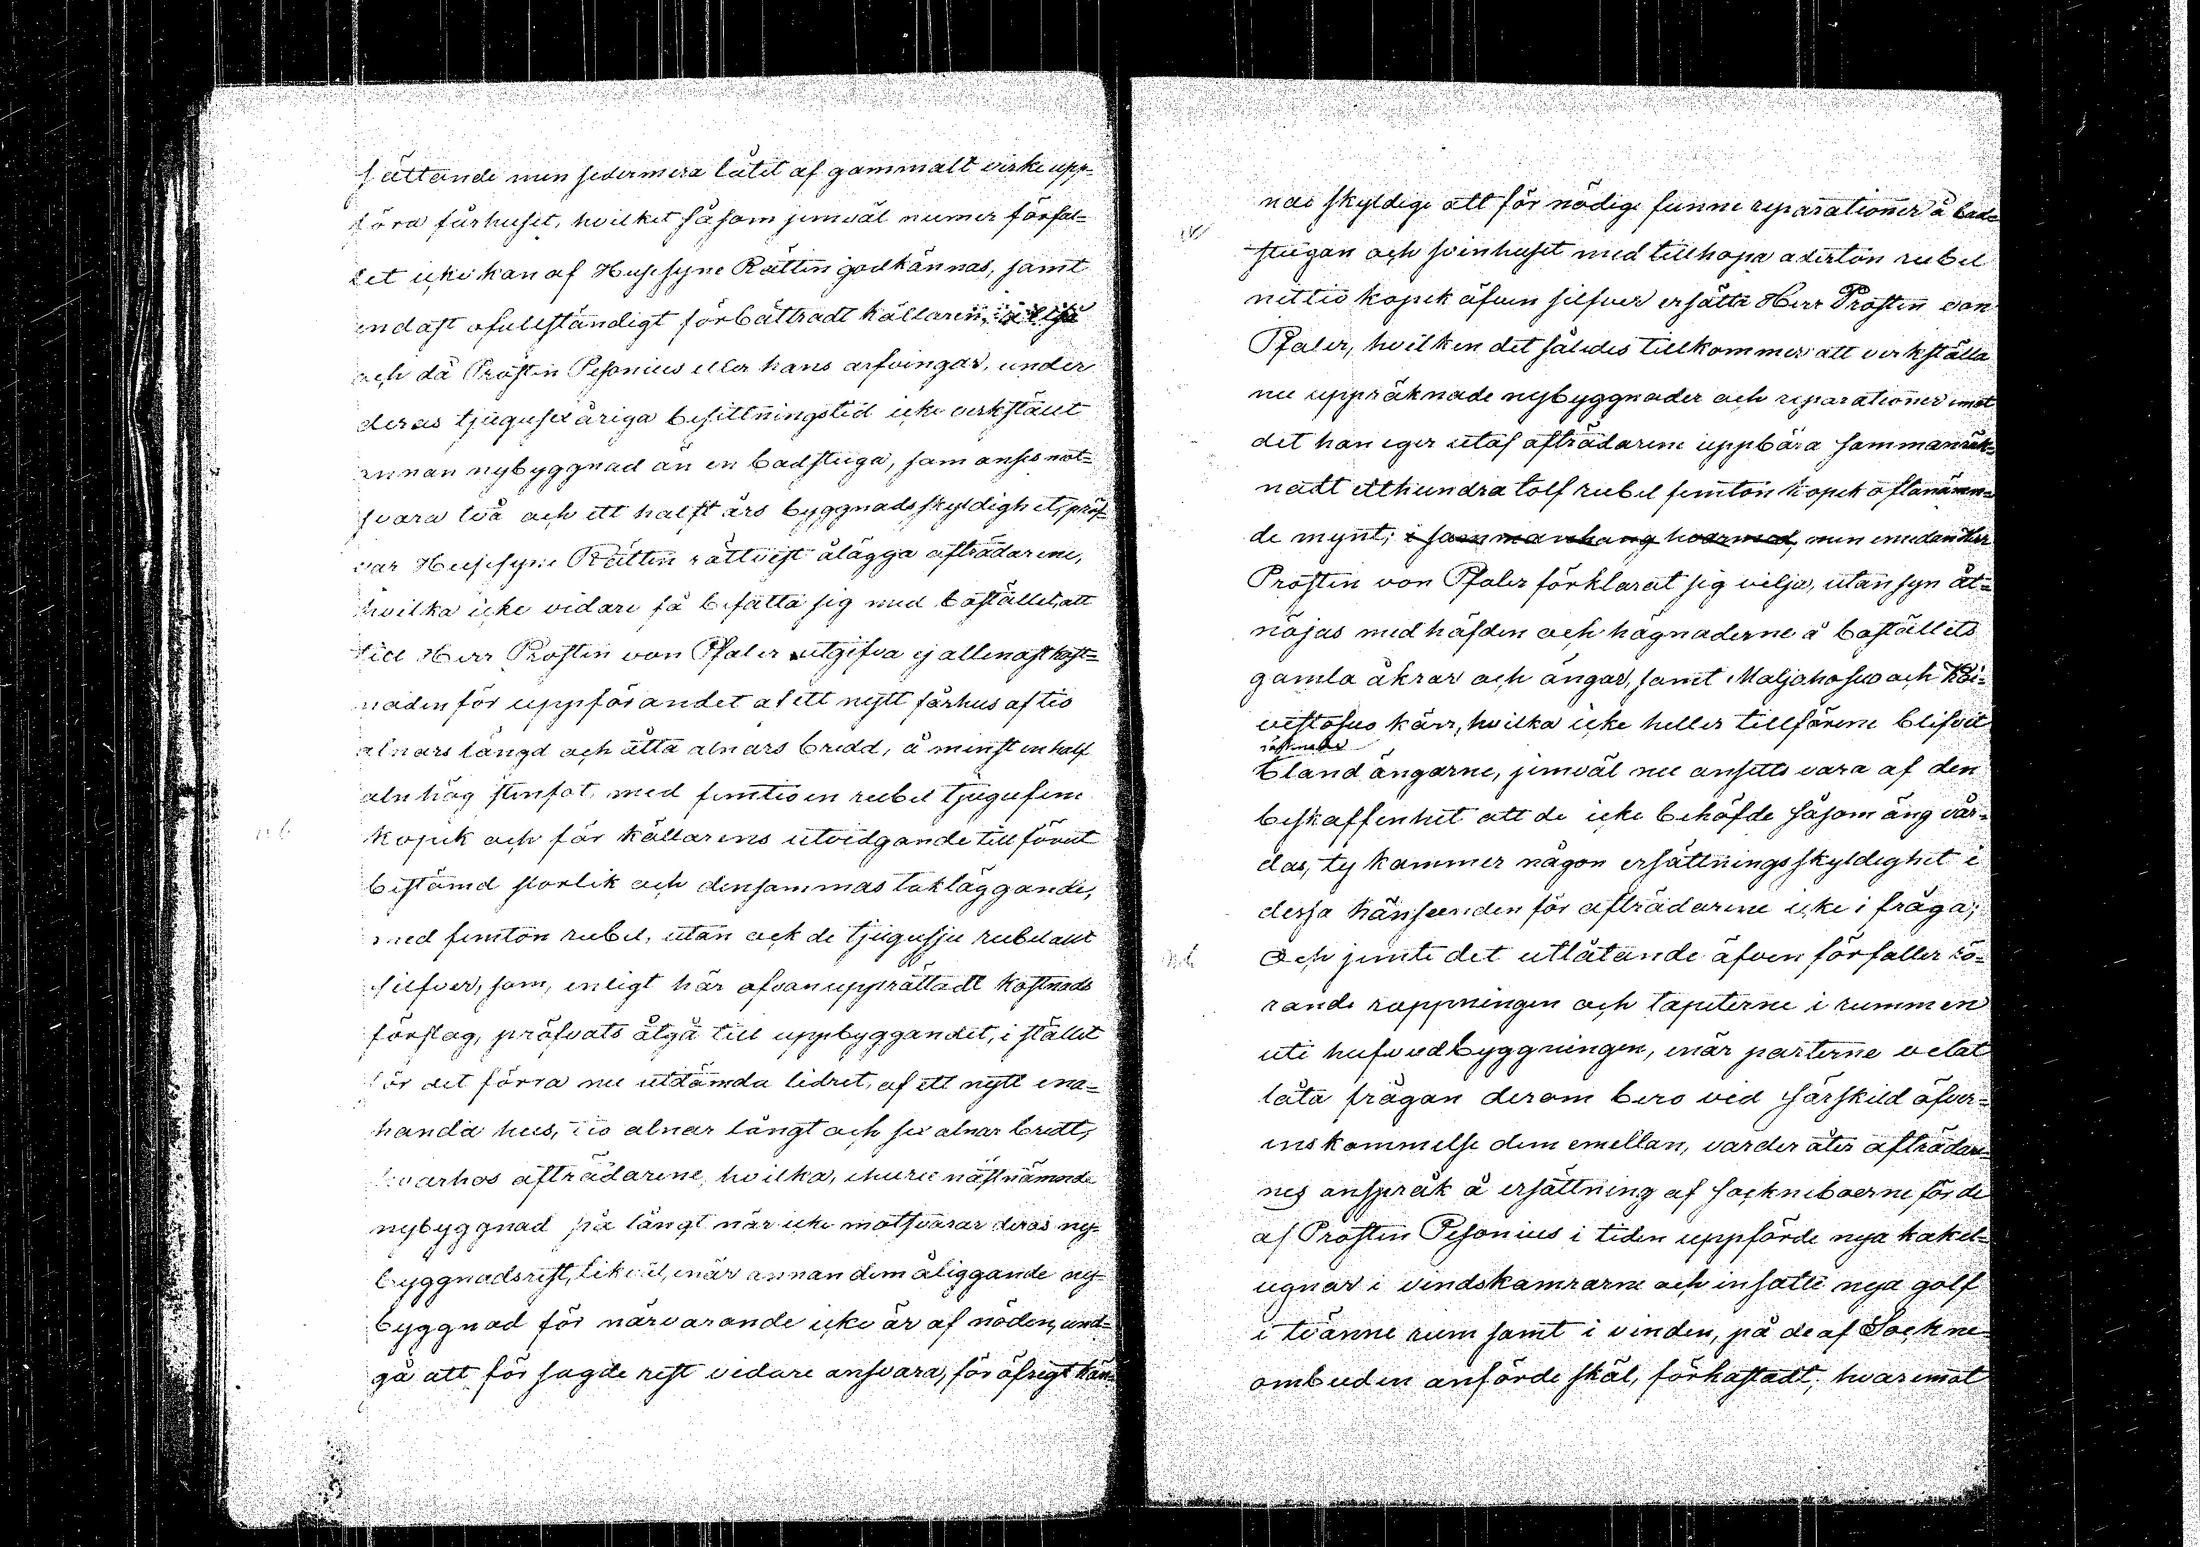 sättande men sedermera låtit af gammalt virke upp-
föra fårhuset, hvilket såsom jemväl numer förfal-
let icke kan af Husesyne Rätten godkännas, samt
endast ofullständigt förbättradt källaren,
och då Prosten Pesonius eller hans arfvingar, under
deras tjugusexåriga besittningstid icke verkstält
annan nybyggnad än en badstuga, som anses mot-
svara två och ett halft års byggnadsskyldighet, pröf-
var Husesyne Rätten rättvist ålägga afträdarene,
hvilka icke vidare få befatta sig med bostället, att
till Herr Prosten von Pfaler utgifva ej allenast kost-
naden för uppförandet af ett nytt fårhus af tio
alnars längd och åtta alnars bredd, å minst en half
aln hög stenfot, med femtioen rubel tjugufem
kopek och för källarens utvidgande till förut
bestämd storlek och densammas takläggande,
med femton rubel, utan ock de tjugusju rubel allt
silfver, som, enligt här ofvan upprättadt kostnads
förslag, pröfvats åtgå till uppbyggandet, i stället
för det förra nu utdömda lidret, af ett nytt ena-
handa hus, tio alnar långt och sex alnar bredt,
hvarhos afträdarene, hvilka, ehuru nästnämnde
nybyggnad på långt när icke motsvarar deras ny-
byggnadsrest, likväl, när annan dem åliggande ny-
byggnad för närvarande icke är af nöden, und-
gå att för sagde rest vidare ansvara, för öfrigt kän-
nas skyldige att för nödige funne reparationer å bad-
stugan och svinhuset med tillhopa aderton rubel
nittio kopek äfven silfver ersätta Herr Prosten von
Pfaler, hvilken det således tillkommer att verkställa
nu uppräknade nybyggnader och reparationer emot
det han eger utaf afträdarene uppbära sammanräk-
nadt etthundra tolf rubel femton kopek oftanämn-
de mynt; i sammanhang hvarmed, men emedan Herr
Prosten von Pfaler förklarat sig vilja, utan syn åt-
nöjas med häfden och hägnaderne å boställets
gamla åkrar och ängar, samt Maljahosuo och Koi-
vistosuo kärr, hvilka icke heller tillförene blifvit
bland ängarne, jemväl nu ansetts vara af den
beskaffenhet att de icke behöfde såsom äng vår-
das, ty kommer någon ersättningsskyldighet i
dessa hänseenden för afträdarene icke i fråga;
Och jemte det utlåtande äfven förfaller rö-
rande rappningen och tapeterne i rummen
uti hufvudbyggningen, när parterne velat
låta frågan derom bero ved särskild öfver-
enskommelse dem emellan, varder åter afträdare-
nes anspråk å ersättning af socknebоerne för de
af Prosten Pesonius i tiden uppförde nya kakel-
ugnar i vindskamrarne och insatte nya golf
i tvänne rum samt i vinden, på de af Sockne-
ombuden anförde skäl, förkastadt; hvaremot